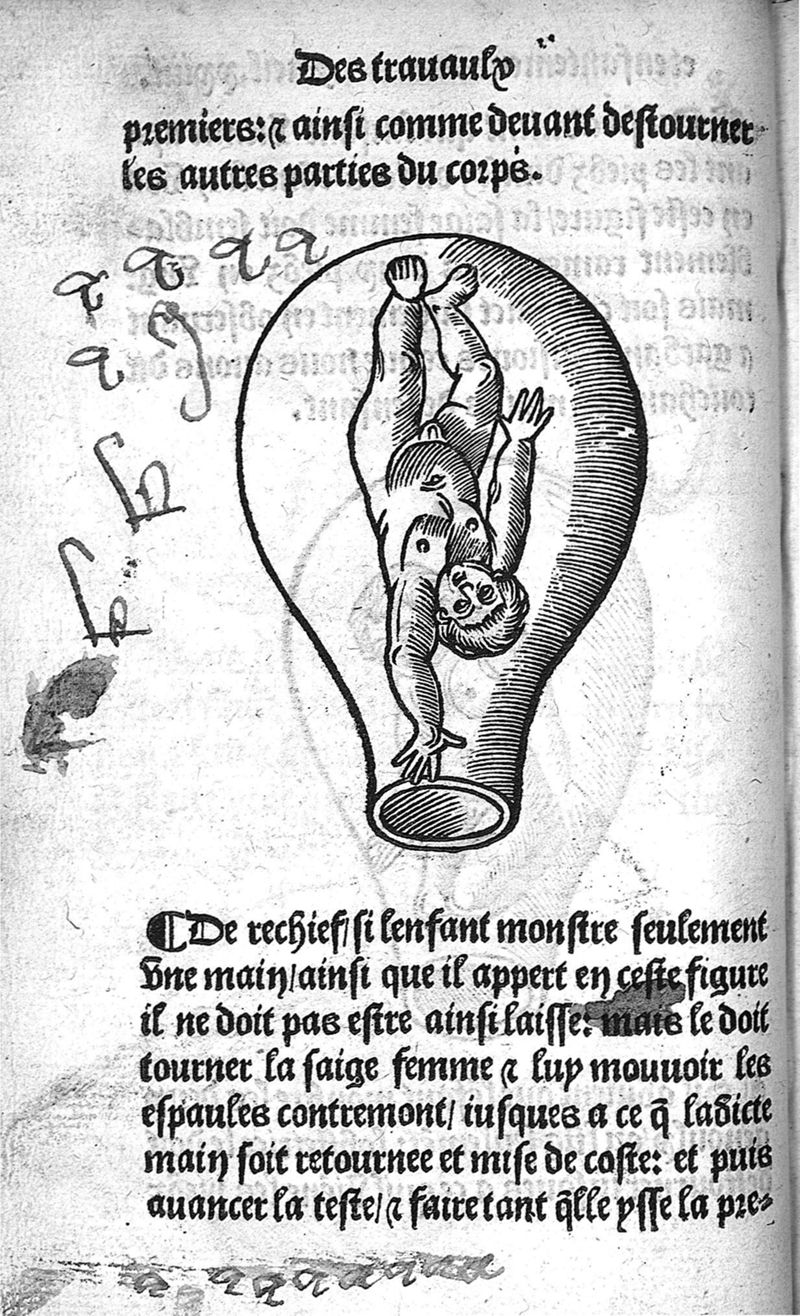 Des travaulx
premiers: ⁊ ainsi comme devant destourner
les autres parties du corps.
a a a a
a
¶ De rechief/ si lenfant monstre seulement
vne main/ ainsi que il appert en ceste figure
il ne doit pas estre ainsi laisse: mais le doit
tourner la saige femme ⁊ luy mouuoir les
espaules contremont/ iusques a ce q̄ ladicte
main soit retournee et mise de coste: et puis
auancer la teste/ ⁊ faire tant q̄lle ysse la pre⸗